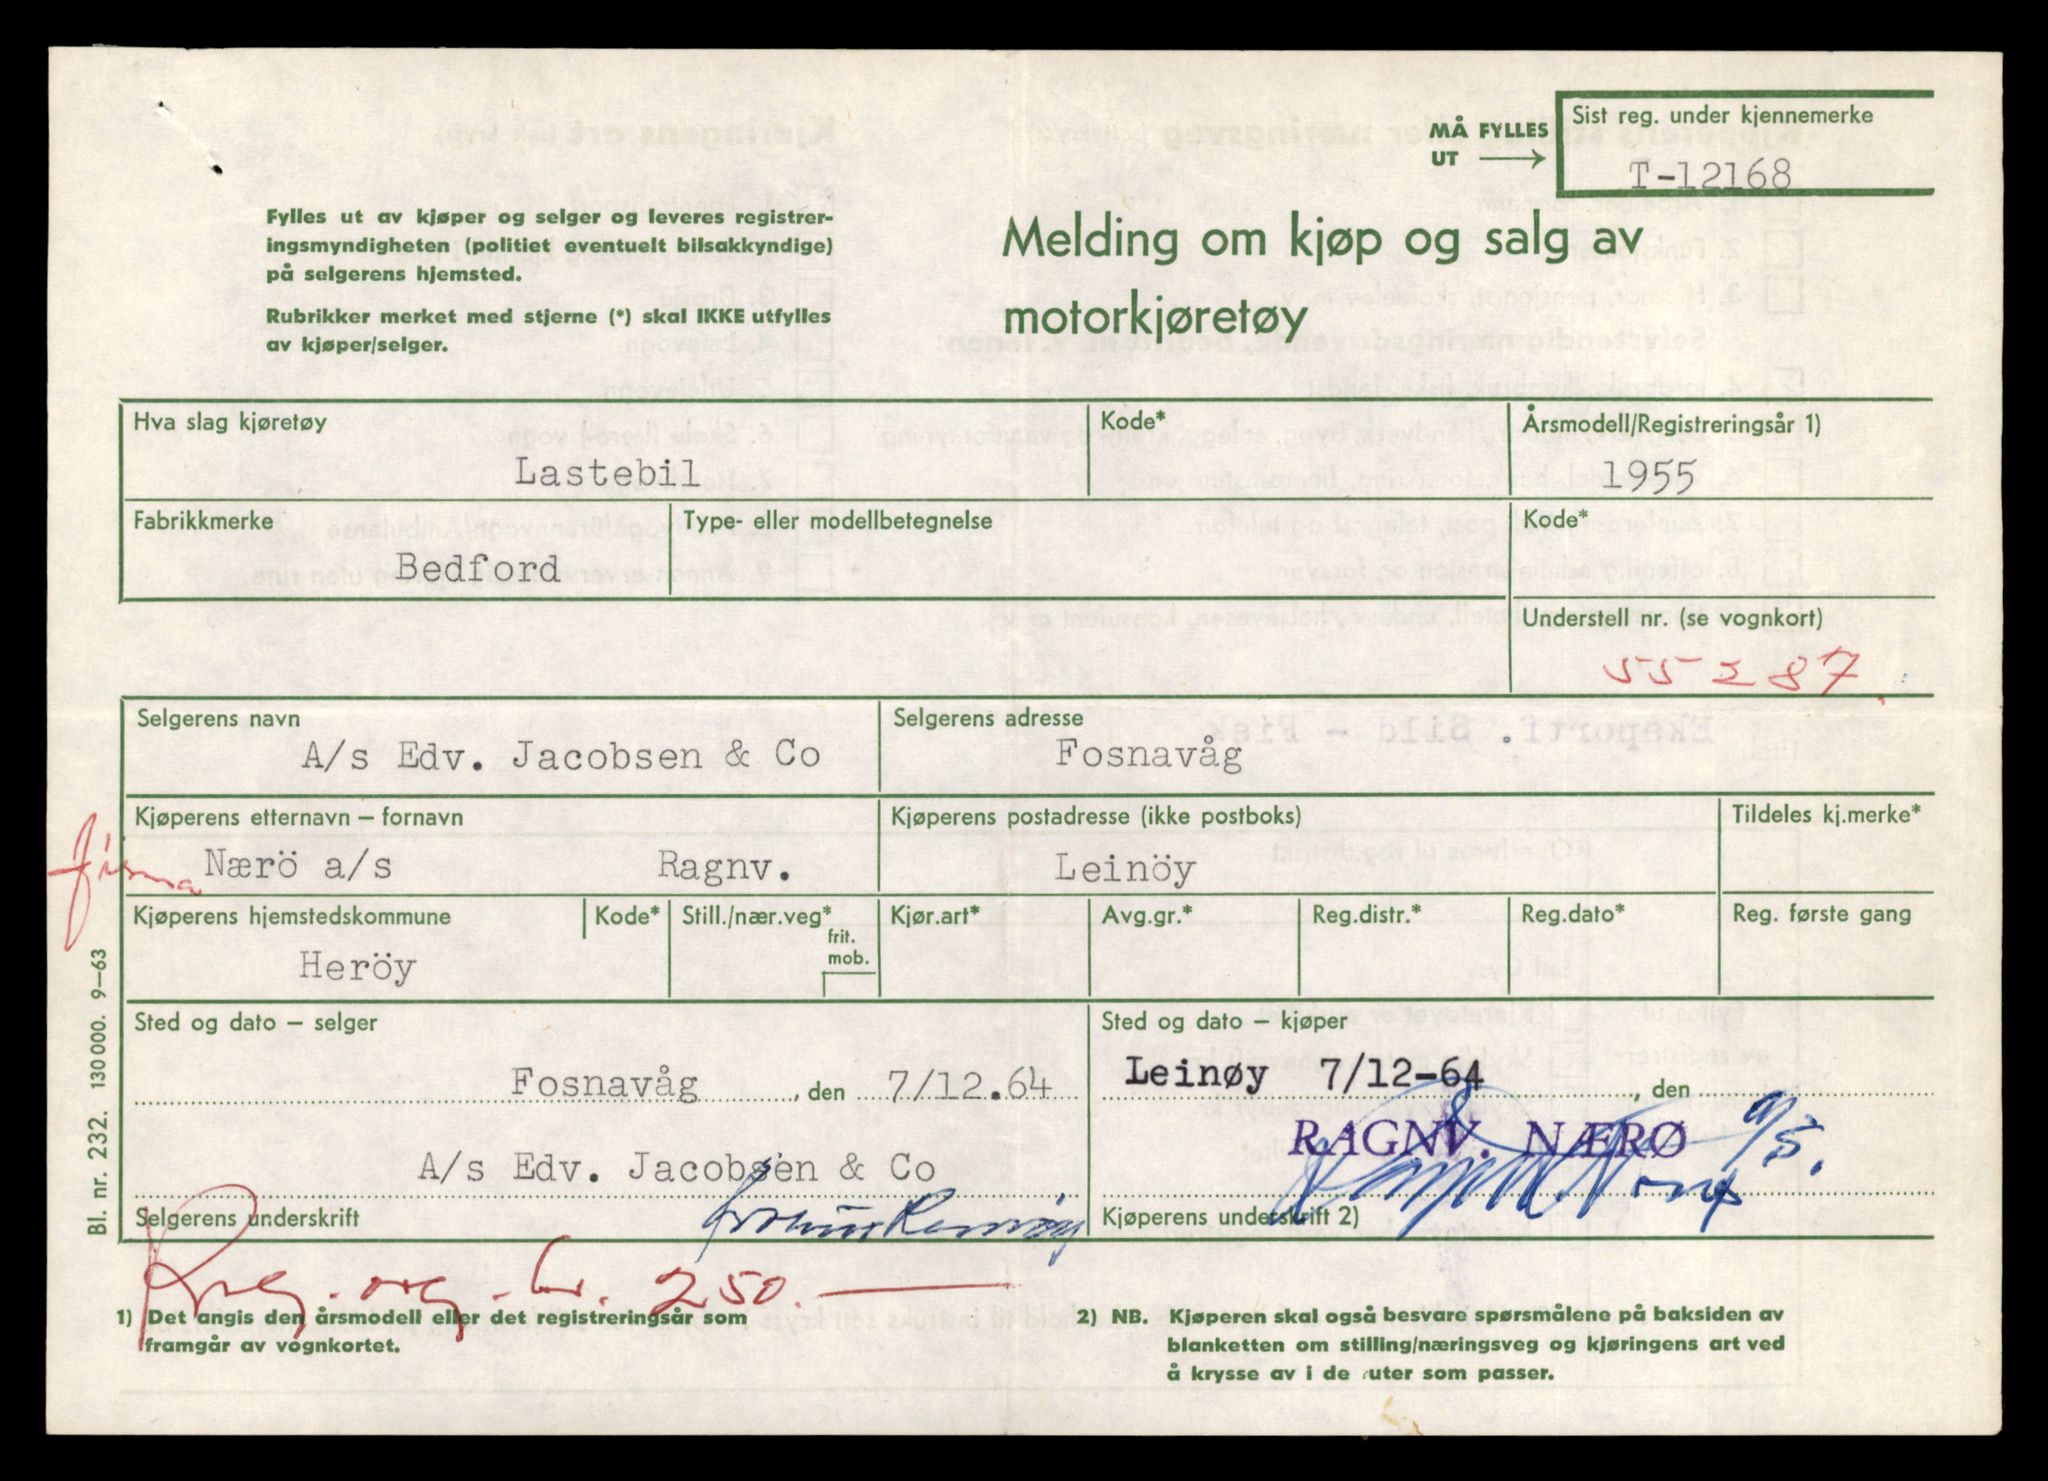 Sist reg. under kjennemerke
MÅ FYLLES
UT
T-12168
Fylles ut av kjøper og selger og leveres registrer-
ingsmyndigheten (politiet eventuelt bilsakkyndige)
på selgerens hjemsted.
Rubrikker merket med stjerne (*) skal IKKE utfylles
av kjøper/selger.
Melding om kjøp og salg av
motorkjøretøy
Hva slag kjøretøy
Kode*
Årsmodell/Registreringsår 1)
Lastebil
1955
Fabrikkmerke
Type- eller modellbetegnelse
Kode*
Bedford
Understell nr. (se vognkort)
55287
Selgerens navn
Selgerens adresse
A/s Edv. Jacobsen & Co
Fosnavåg
Kjøperens etternavn – fornavn
Kjøperens postadresse (ikke postboks)
Tildeles kj.merke*
firma
Nærö a/s Ragnv.
Leinöy
Kjøperens hjemstedskommune
Kode*
Still./nær.veg*
frit.
mob.
Kjør.art*
Avg.gr.*
Reg.distr.*
Reg.dato*
Reg. første gang
Heröy
Sted og dato – selger
Sted og dato – kjøper
Fosnavåg, den 7/12.64
Leinøy 7/12-64, den
RAGNV. NÆRØ
A/S.
A/s Edv. Jacobsen & Co
Selgerens underskrift
Kjøperens underskrift 2)
Bl. nr. 232. 130 000. 9–63
250.—
1) Det angis den årsmodell eller det registreringsår som
framgår av vognkortet.
2) NB. Kjøperen skal også besvare spørsmålene på baksiden av
blanketten om stilling/næringsveg og kjøringens art ved
å krysse av i de ruter som passer.